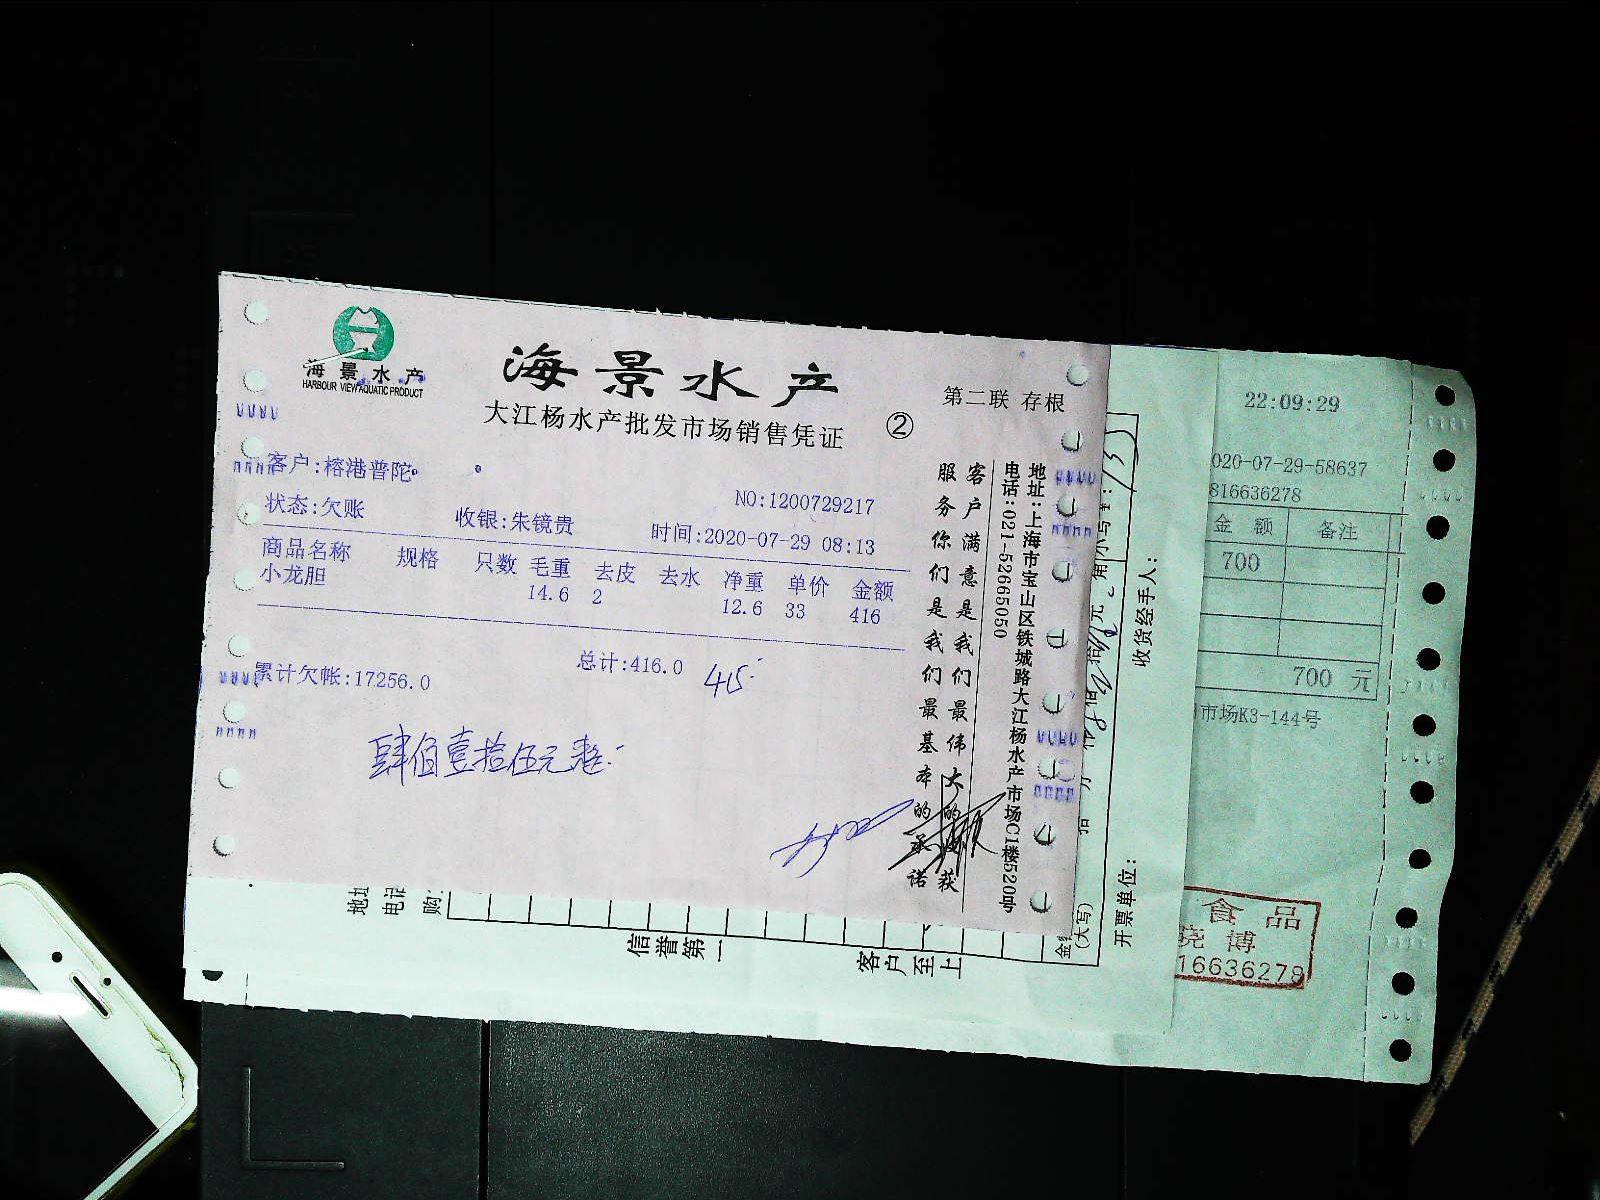 海景水产
HARBOUR VIEW AQUATIC PRODUCT
海景水产
大江杨水产批发市场销售凭证
②
第二联 存根
客户:榕港普陀
NO:1200729217
状态:欠账
收银:朱镜贵
时间:2020-07-29 08:13
商品名称 规格 只数 毛重 去皮 去水 净重 单价 金额
小龙胆 14.6 2 12.6 33 416
总计:416.0
415
累计欠帐:17256.0
肆佰壹拾伍元整
客户满意是我们最伟大的
获
服务你们是我们最基本的承诺
地址:上海市宝山区铁城路大江杨水产市场C1楼520号
电话:021-52665050
收货经手人:
开票单位:
(大写)
信誉第一
客户至上
22:09:29
020-07-29-58637
816636278
金 额 备注
700
700 元
市场K3-144号
食品
博
16636278